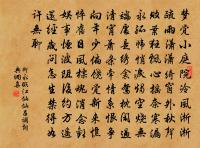 夢覺小庭院冷風淅淅
疏雨瀟瀟綺窗外秋聲
敗葉狂飄心搖奈寒漏
永孤幃悄淚燭空燒無
端處是繡衾鴛枕閒過
清宵蕭條牽情繫恨爭
向年少偏饒覺新來憔
悴舊日風標魂銷念歡
娛事煙波阻後約方遙
還經歲問怎生禁得如
許無聊
柳永臨江仙仙呂調